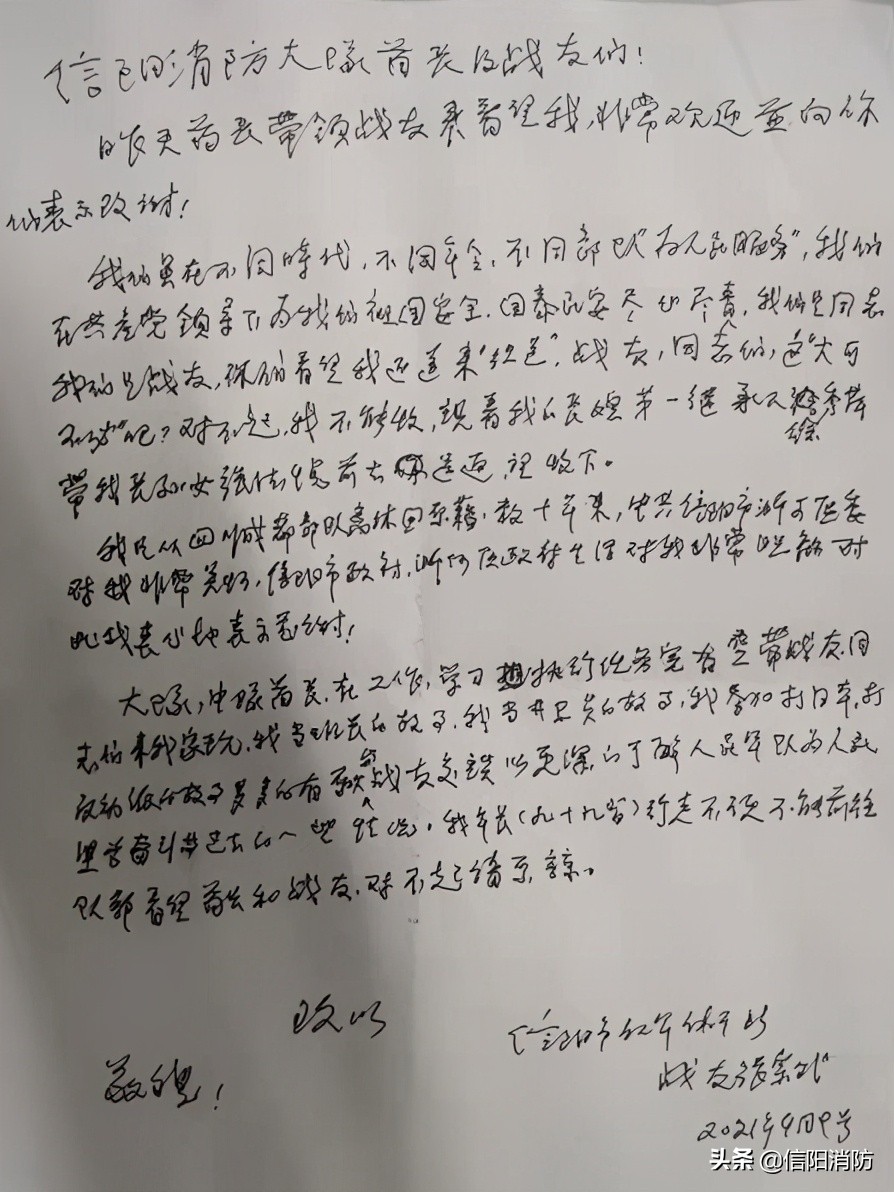 信阳消防大队首长及战友们!
昨天首长带领战友来看望我,非常欢迎并向你
们表示致谢!
我们虽在不同時代,不同年令,不同部队"为人民服务",我们
在共产党領导下为我们祖国安全.国泰民安尽心尽责,我们是同志
我们是战友,你们看望我还送来"红包".战友,同志们,这"大可
不必"吧?对不起,我不能收,現着我的长媳第一继承人
带我长孙女 前去 送返,望收下。
我是从四川成都部队离休回原籍.数十年来,中共信阳市浉河区委
对我非常关怀,信阳市政府,浉河区政府生活对我非常照顾对
此我衷心地表示感谢!
大队,中队首长.在工作,学习 执行任务完有空带战友同
志们来我家玩,我当班长的故事.我当 的故事,我参加打日本,打
反动派的故事多多的有 和战友交谈以更深的了解人民军队为人民
过去的一些 。我年长(九十九岁)行走不便不能前往
队部看望首长和战友.对不起请原諒。
致以
敬礼!
信阳市红军休干所
战友張
2021年9月9号
头条 @信阳消防